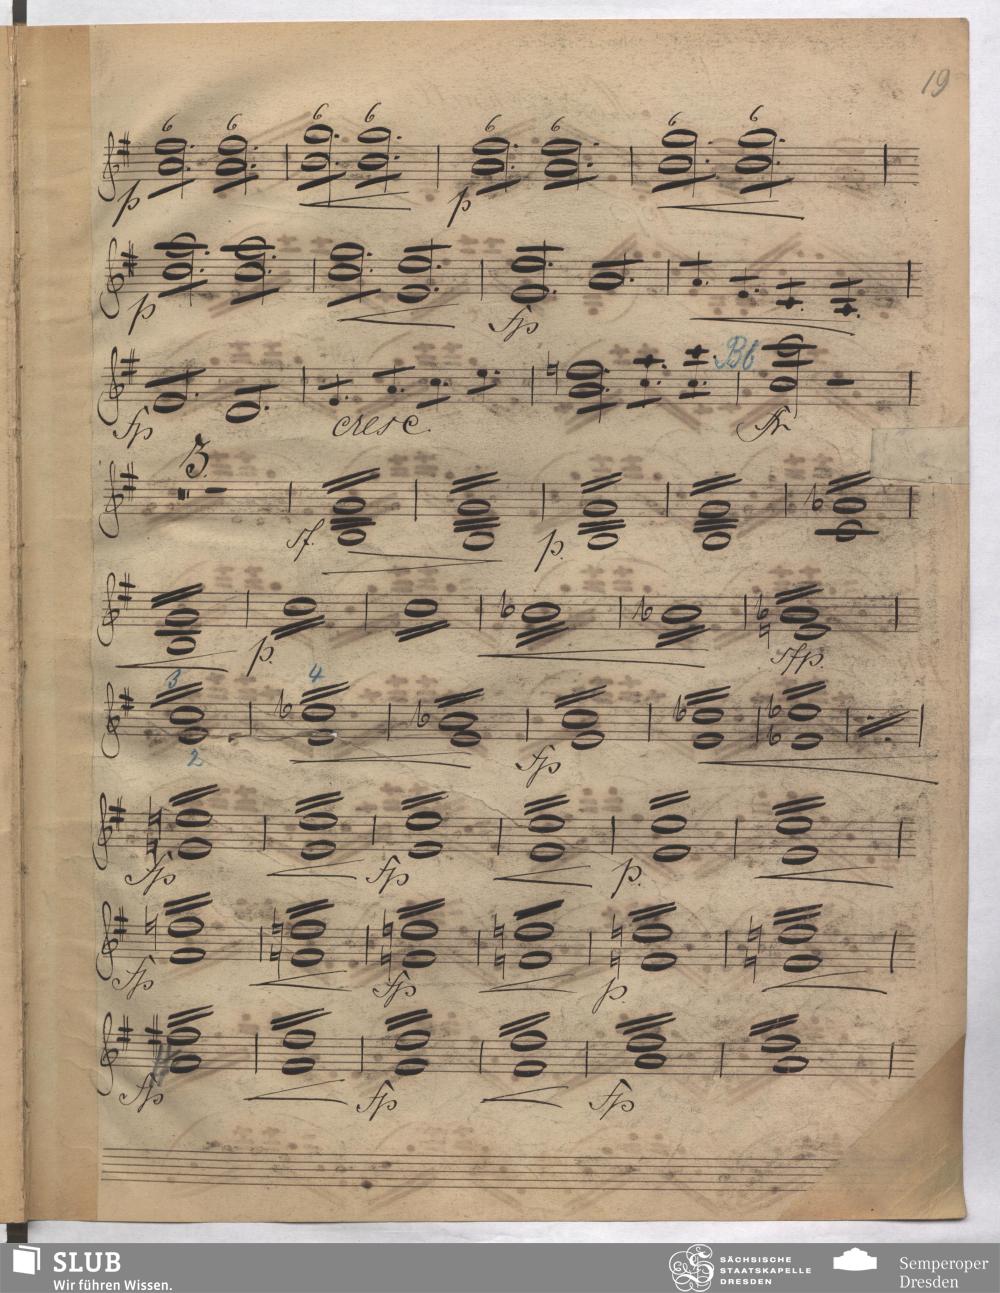 19
6 6 6 6 6 6 6 6
p p
p fp
Bb
fp cresc. fr
3.
sf. p.
p. sfp.
3 4
2 fp
fp fp p.
fp fp p.
fp fp fp
SLUB
Wir führen Wissen.
SÄCHSISCHE
STAATSKAPELLE
DRESDEN
Semperoper
Dresden